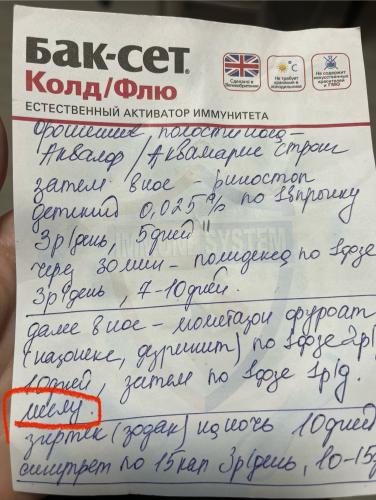 Бак-сет®
Колд/Флю
ЕСТЕСТВЕННЫЙ АКТИВАТОР ИММУНИТЕТА
Сделано в Великобритании
Не требует хранения в холодильнике
Не содержит искусственных красителей и ГМО
Орошение полости носа -
Аквалор / Аквамарис Стронг
затем в нос - риностоп
детский 0,025% по 1впрыску
3р/день, 5дней
IMMUNE SYSTEM
через 30мин - полидекса по 1дозе
3р/день, 7-10дней.
далее в нос - мометазон фуроат
(назонекс, дезринит) по 1дозе 2р/
10дней, затем по 1дозе 1р/д.
зиртек (зодак) на ночь 10дней
синупрет по 15кап 3р/день, 10-15д